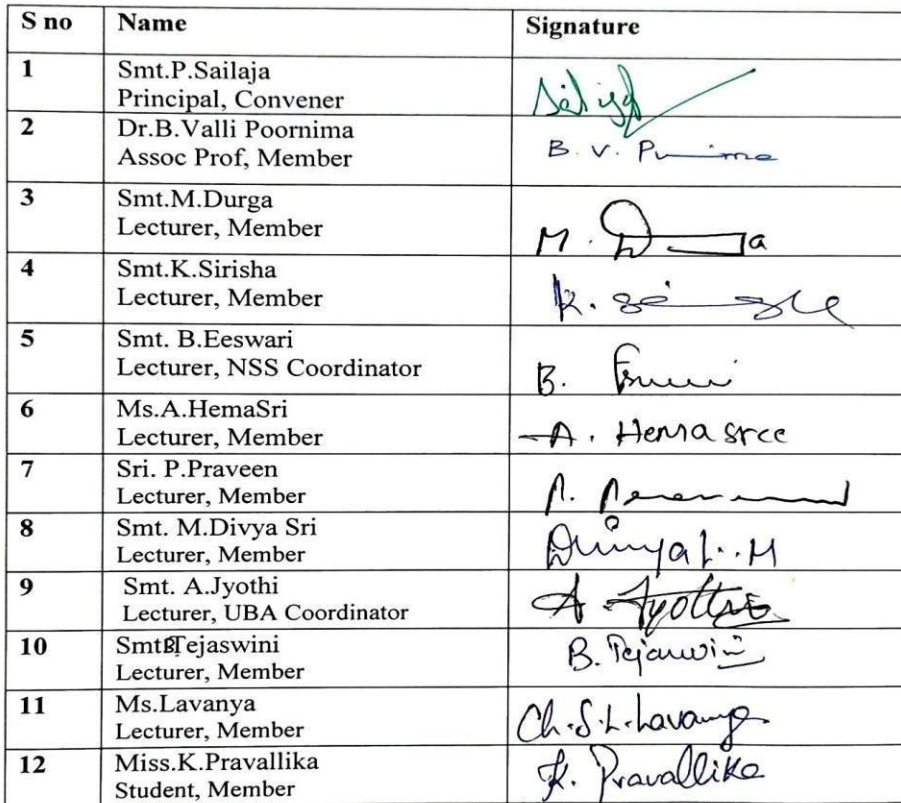 S no Name Signature
1 Smt.P.Sailaja
Principal, Convener
2 Dr.B.Valli Poornima
Assoc Prof, Member
B. V. Purnima
3 Smt.M.Durga
Lecturer, Member
M. Durga
4 Smt.K.Sirisha
Lecturer, Member
K.
5 Smt. B.Eeswari
Lecturer, NSS Coordinator
B.
6 Ms.A.HemaSri
Lecturer, Member
A. Hemasree
7 Sri. P.Praveen
Lecturer, Member
P.
8 Smt. M.Divya Sri
Lecturer, Member
M
9 Smt. A.Jyothi
Lecturer, UBA Coordinator
A Jyothi
10 Smt.B.Tejaswini
Lecturer, Member
B. Tejaswini
11 Ms.Lavanya
Lecturer, Member
Ch.S.L.Lavanya
12 Miss.K.Pravallika
Student, Member
K. Pravallika